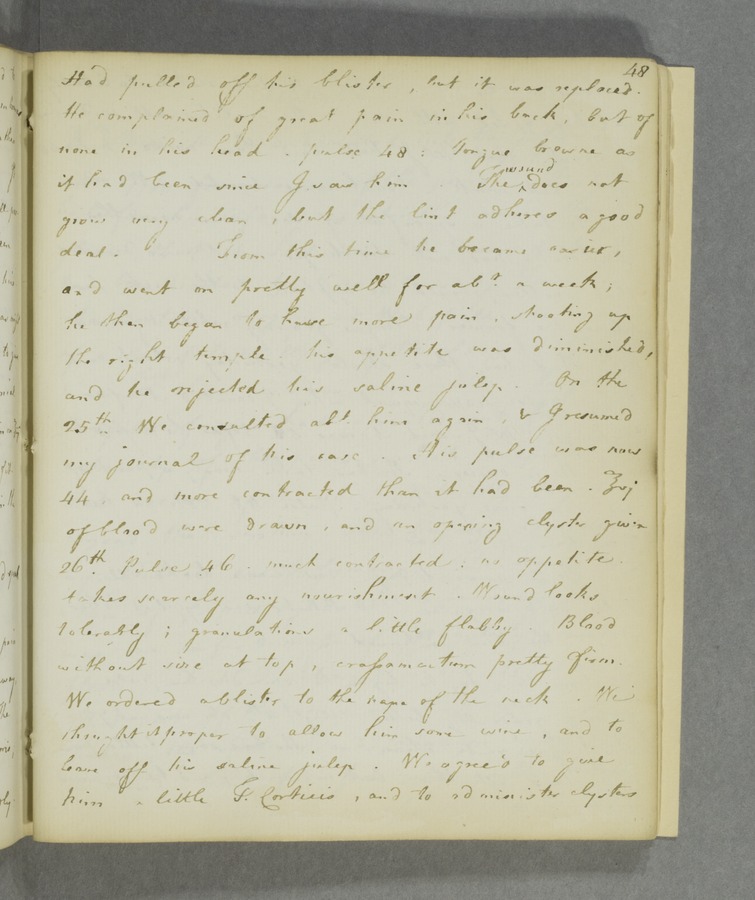 48
Had pulled off his blister, but it was replaced.
He complained of great pain in his back, but of
none in his head. pulse 48: Tongue browne as
it had been since I saw him. The wound does not
grow very clean, but the lint adheres a good
deal. From this time he became easier,
and went on pretty well for abt. a week;
he then began to have more pain, shooting up
the right temple. his appetite was diminished,
and he rejected his saline julep. On the
25th. We consulted abt. him again, & I resumed
my journal of his case. His pulse was now
44, and more contracted than it had been. ℥vj
of blood were drawn, and an opening clyster given
26th. Pulse 46. much contracted; no appetite.
takes scarcely any nourishment. Wound looks
tolerably; granulations a little flabby. Blood
without size at top, crassamentum pretty firm.
We ordered a blister to the nape of the neck. We
thought it proper to allow him some wine, and to
leave off his saline julep. We agree'd to give
him a little T. Corticis, and to administer clysters